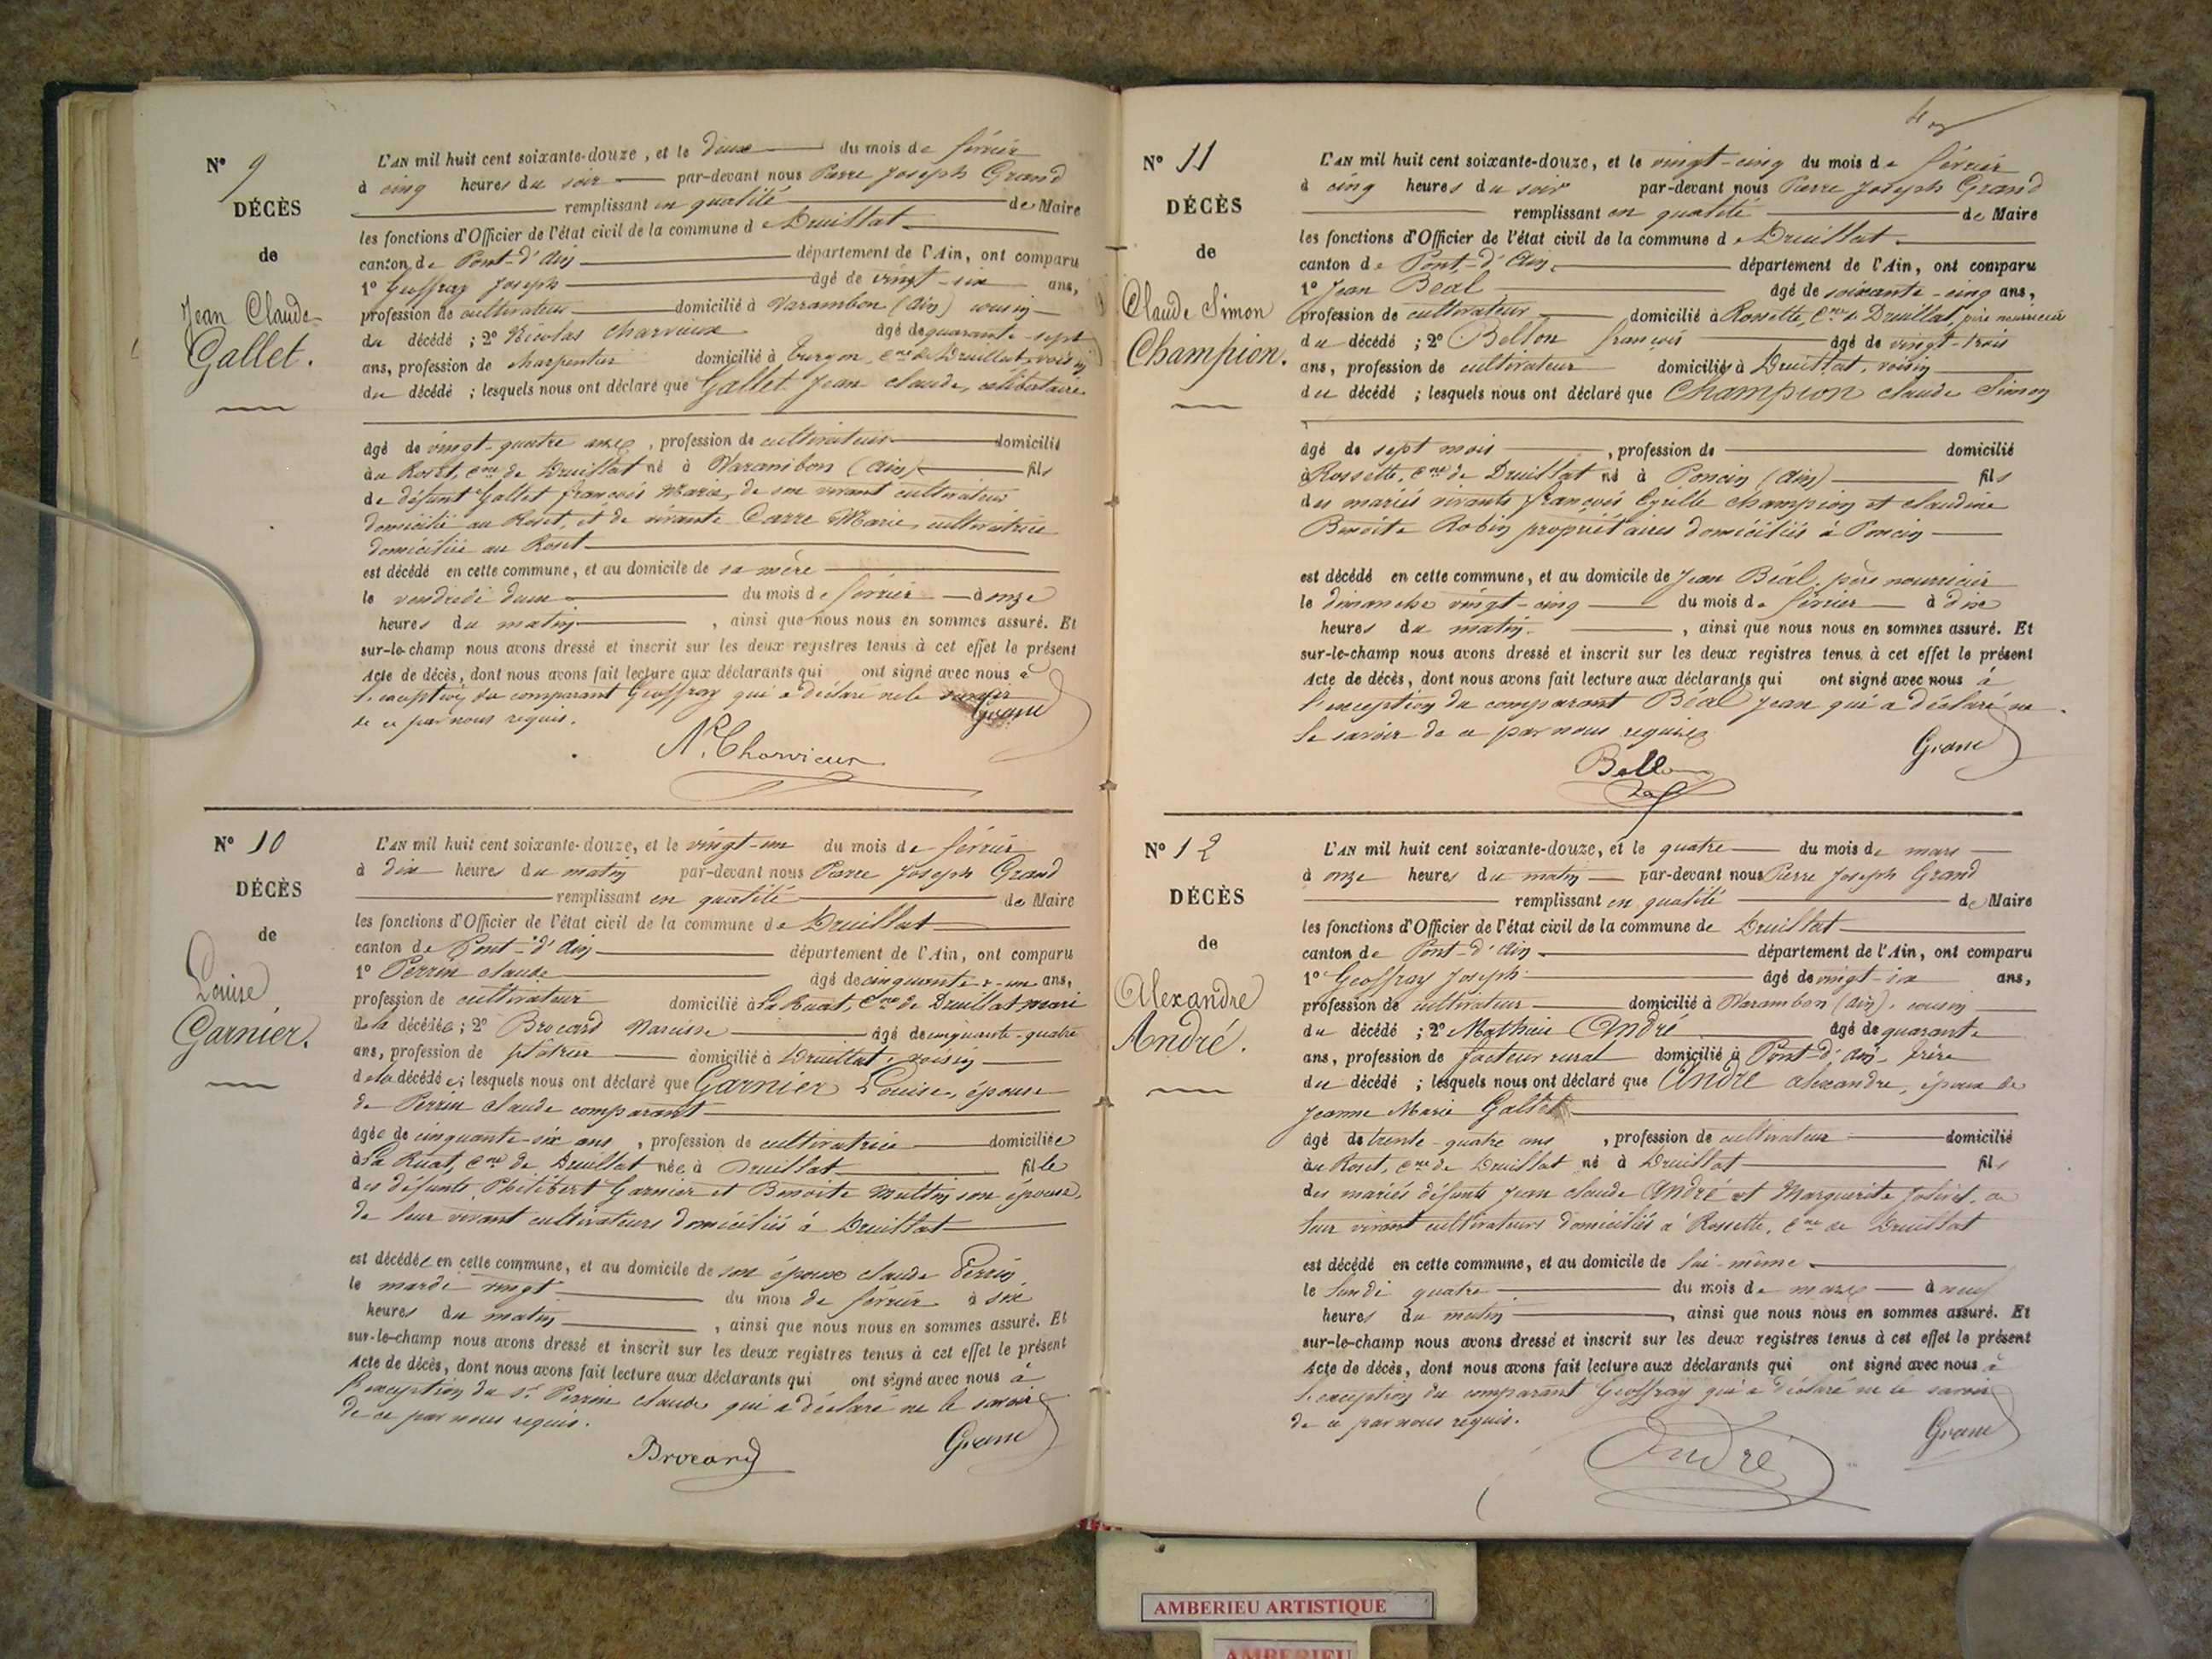 N° 9
DÉCÈS
de
Jean Claude
Gallet.
L'AN mil huit cent soixante-douze, et le deux du mois de février
à cinq heures du soir par-devant nous Pierre Joseph Grand
remplissant en qualité de Maire
les fonctions d'Officier de l'état civil de la commune d Druillat
canton de Pont-d'Ain département de l'Ain, ont comparu
1° Geoffray Joseph âgé de vingt-six ans,
profession de cultivateur domicilié à Varambon (Ain) cousin
du décédé ; 2° Nicolas Charvieux âgé de quarante-sept
ans, profession de charpentier domicilié à Turgon, cne de Druillat, voisin
du décédé ; lesquels nous ont déclaré que Gallet Jean Claude, célibataire
âgé de vingt-quatre ans, profession de cultivateur domicilié
au Roset, cne de Druillat né à Varambon (Ain) fils
de défunt Gallet françois Marie, de son vivant cultivateur
domicilié au Roset, et de vivante Carre Marie, cultivatrice
domiciliée au Roset
est décédé en cette commune, et au domicile de sa mère
le vendredi deux du mois de février à onze
heures du matin, ainsi que nous nous en sommes assuré. Et
sur-le-champ nous avons dressé et inscrit sur les deux registres tenus à cet effet le présent
Acte de décès, dont nous avons fait lecture aux déclarants qui ont signé avec nous à
l'exception du comparant Geoffray qui a déclaré ne le savoir
de ce par nous requis.
Grand
N. Charvieux
N° 10
DÉCÈS
de
Louise
Garnier.
L'AN mil huit cent soixante-douze, et le vingt-un du mois de février
à dix heures du matin par-devant nous Pierre Joseph Grand
remplissant en qualité de Maire
les fonctions d'Officier de l'état civil de la commune de Druillat
canton de Pont-d'Ain département de l'Ain, ont comparu
1° Perrin claude âgé de cinquante-un ans,
profession de cultivateur domicilié à La Ruat, cne de Druillat mari
de la décédée ; 2° Brocard Narcisse âgé de cinquante-quatre
ans, profession de plâtrier domicilié à Druillat, voisin
de la décédée ; lesquels nous ont déclaré que Garnier Louise, épouse
de Perrin claude comparant
âgée de cinquante-six ans, profession de cultivatrice domiciliée
à La Ruat, cne de Druillat née à Druillat fille
des défunts Philibert Garnier et Benoite Multin son épouse,
de leur vivant cultivateurs domiciliés à Druillat
est décédée en cette commune, et au domicile de son époux claude Perrin
le mardi vingt du mois de février à six
heures du matin, ainsi que nous nous en sommes assuré. Et
sur-le-champ nous avons dressé et inscrit sur les deux registres tenus à cet effet le présent
Acte de décès, dont nous avons fait lecture aux déclarants qui ont signé avec nous à
l'exception du sr Perrin claude qui a déclaré ne le savoir
de ce par nous requis.
Brocard Grand
N° 11
DÉCÈS
de
Claude Simon
Champion.
L'AN mil huit cent soixante-douze, et le vingt-cinq du mois de février
à cinq heures du soir par-devant nous Pierre Joseph Grand
remplissant en qualité de Maire
les fonctions d'Officier de l'état civil de la commune d Druillat.
canton de Pont-d'Ain. département de l'Ain, ont comparu
1° Jean Béal âgé de soixante-cinq ans,
profession de cultivateur domicilié à Rossette, cne de Druillat, père nourricier
du décédé ; 2° Bollon françois âgé de vingt-trois
ans, profession de cultivateur domicilié à Druillat, voisin
du décédé ; lesquels nous ont déclaré que Champion claude Simon
âgé de sept mois, profession de domicilié
à Rossette, cne de Druillat né à Poncin (Ain) fils
des mariés vivants françois Cyrille champion et claudine
Benoite Robin propriétaires domiciliés à Poncin
est décédé en cette commune, et au domicile de Jean Béal, père nourricier
le dimanche vingt-cinq du mois de février à dix
heures du matin, ainsi que nous nous en sommes assuré. Et
sur-le-champ nous avons dressé et inscrit sur les deux registres tenus à cet effet le présent
Acte de décès, dont nous avons fait lecture aux déclarants qui ont signé avec nous à
l'exception du comparant Béal Jean qui a déclaré ne
le savoir de ce par nous requis
Bollon Grand
N° 12
DÉCÈS
de
Alexandre
André.
L'AN mil huit cent soixante-douze, et le quatre du mois de mars
à onze heures du matin par-devant nous Pierre Joseph Grand
remplissant en qualité de Maire
les fonctions d'Officier de l'état civil de la commune de Druillat
canton de Pont-d'Ain département de l'Ain, ont comparu
1° Geoffray Joseph âgé de vingt-six ans,
profession de cultivateur domicilié à Varambon (Ain), cousin
du décédé ; 2° Mathieu André âgé de quarante
ans, profession de facteur rural domicilié à Pont-d'Ain, frère
du décédé ; lesquels nous ont déclaré que André alexandre, époux de
Jeanne Marie Gallet
âgé de trente-quatre ans, profession de cultivateur domicilié
au Roset, cne de Druillat né à Druillat fils
des mariés défunts Jean claude André et Marguerite de
leur vivant cultivateurs domiciliés à Rossette, cne de Druillat
est décédé en cette commune, et au domicile de lui-même.
le lundi quatre du mois de mars à neuf
heures du matin, ainsi que nous nous en sommes assuré. Et
sur-le-champ nous avons dressé et inscrit sur les deux registres tenus à cet effet le présent
Acte de décès, dont nous avons fait lecture aux déclarants qui ont signé avec nous à
l'exception du comparant Geoffray qui a déclaré ne le savoir
de ce par nous requis.
André Grand
AMBERIEU ARTISTIQUE
AMBERIEU